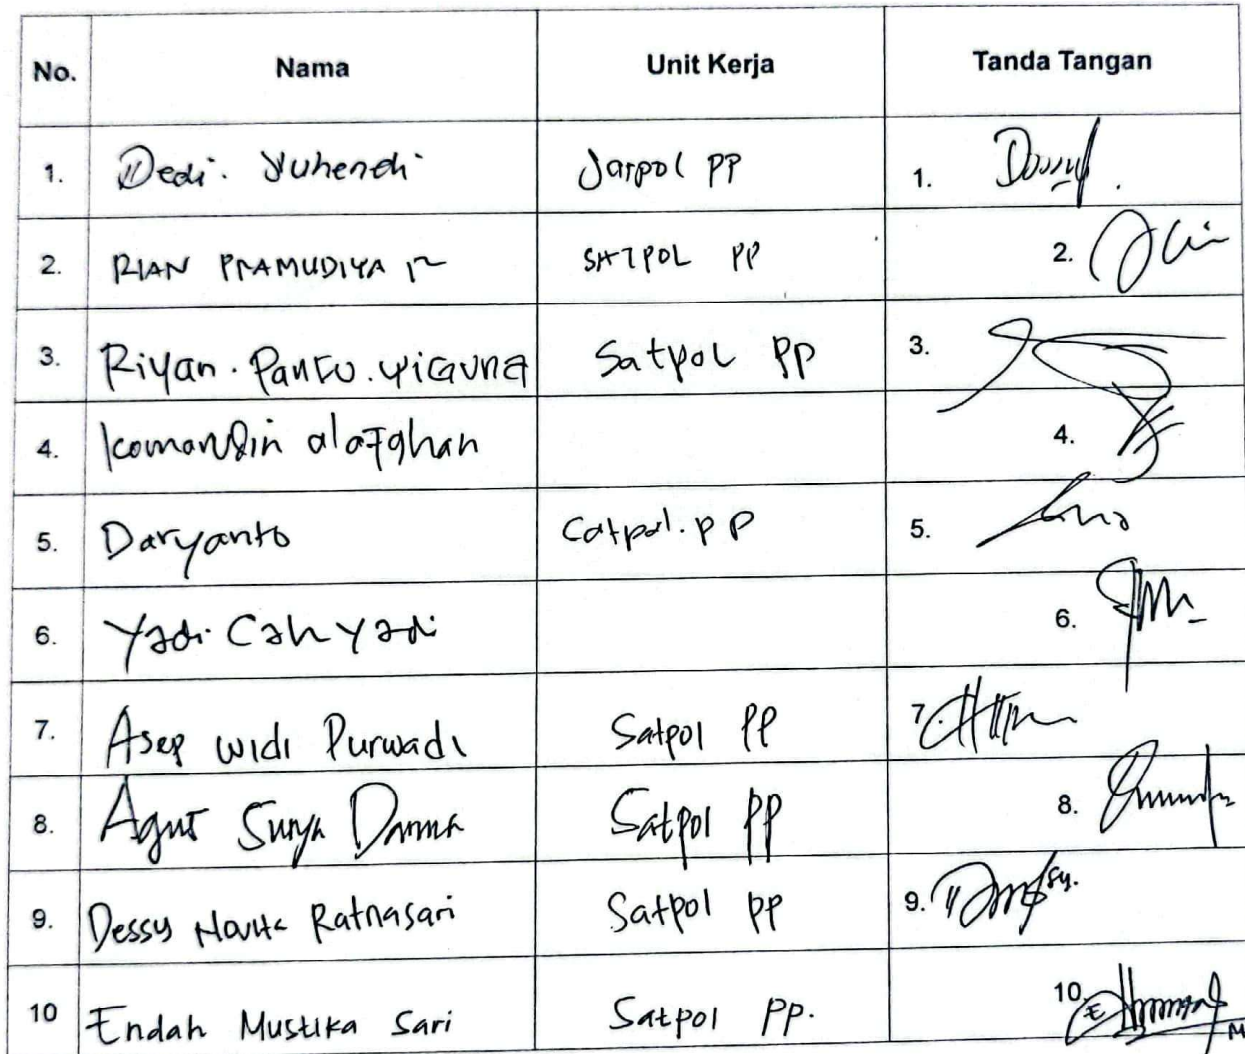 No. Nama Unit Kerja Tanda Tangan
1. Dedi. Yuhendi Satpol PP 1.
2. RIAN PRAMUDIYA R SATPOL PP 2.
3. Riyan. Panfu. wiGUNA Satpol PP 3.
4. Komarudin alafghan 4.
5. Daryanto Satpol. PP 5.
6. Yadi Cahyadi 6.
7. Asep widi Purwadi Satpol PP 7.
8. Agus Surya Darma Satpol PP 8.
9. Dessy Novita Ratnasari Satpol PP 9.
10 Endah Mustika Sari Satpol PP. 10.